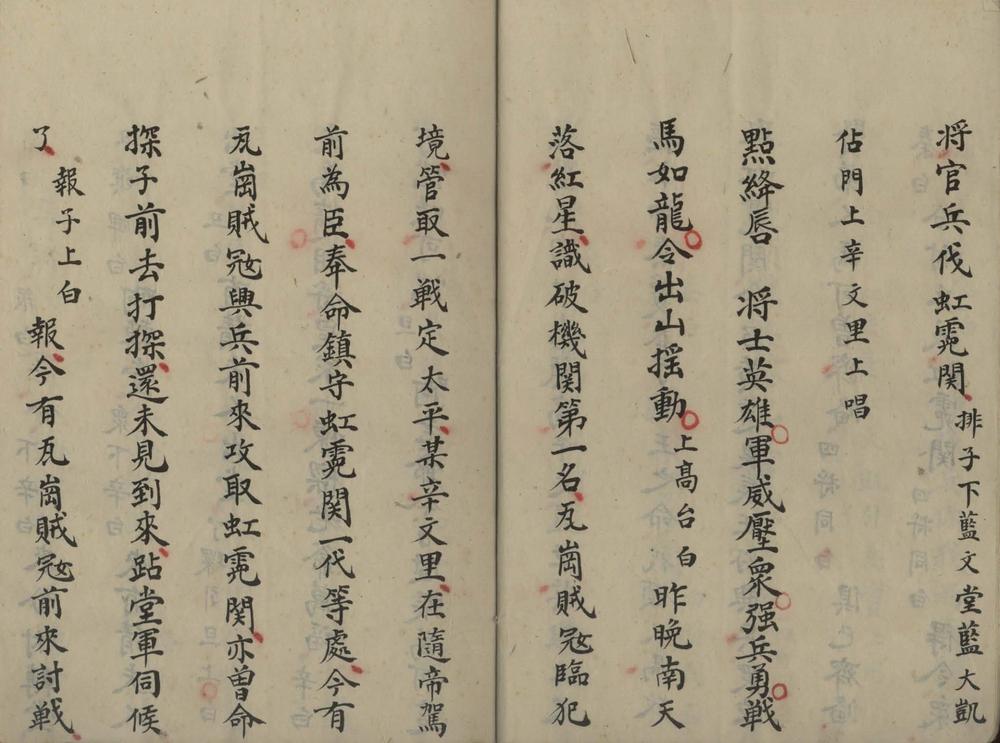 将官兵伐虹霓関排子下藍文堂藍大凱
佔門上辛文里上唱
點絳唇 将士英雄軍威壓衆强兵勇戦
馬如龍令出山揺動上高台白昨晩南天
落紅星識破機関第一名瓦崗賊冦臨犯
境管取一戦定太平某辛文里在隨帝駕
前為臣奉命鎮守虹霓関一代等處今有
瓦崗賊冦興兵前來攻取虹霓関亦曽命
探子前去打探還未見到來跕堂軍伺候
了 報子上白 報今有瓦崗賊冦前來討戦